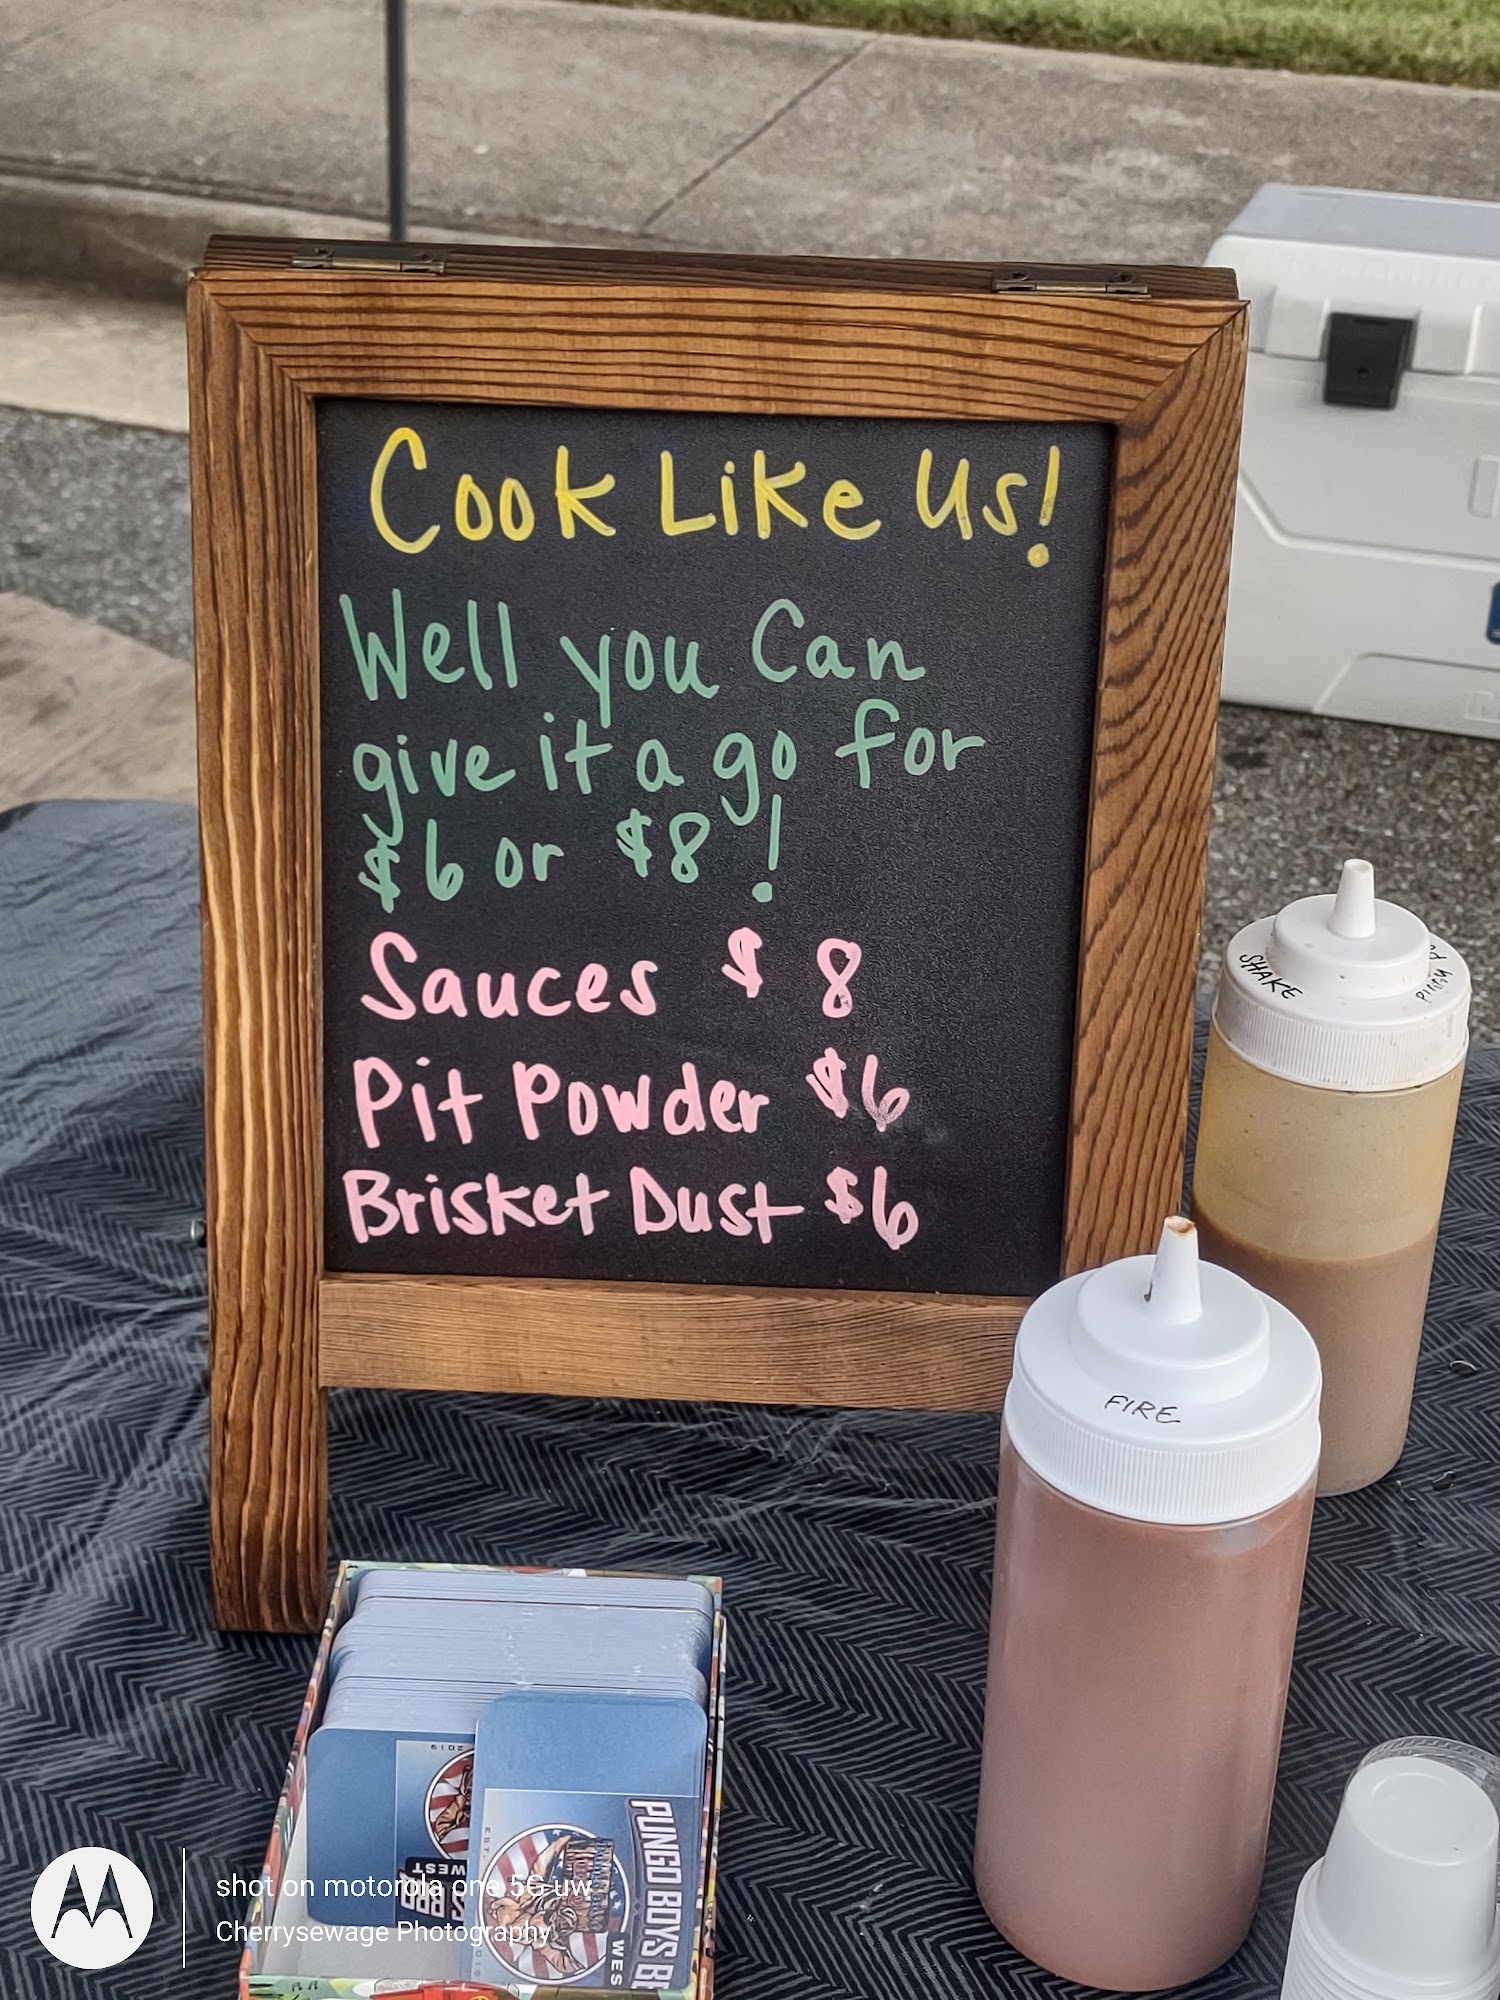 Cook Like Us!
Well you Can
give it a go for
$6 or $8!
Sauces $8
Pit Powder $6
Brisket Dust $6
SHAKE
FIRE
2019
WEST
EST.
PUNGO BOYS
WES
shot on motorola one 5G uw
Cherrysewage Photography